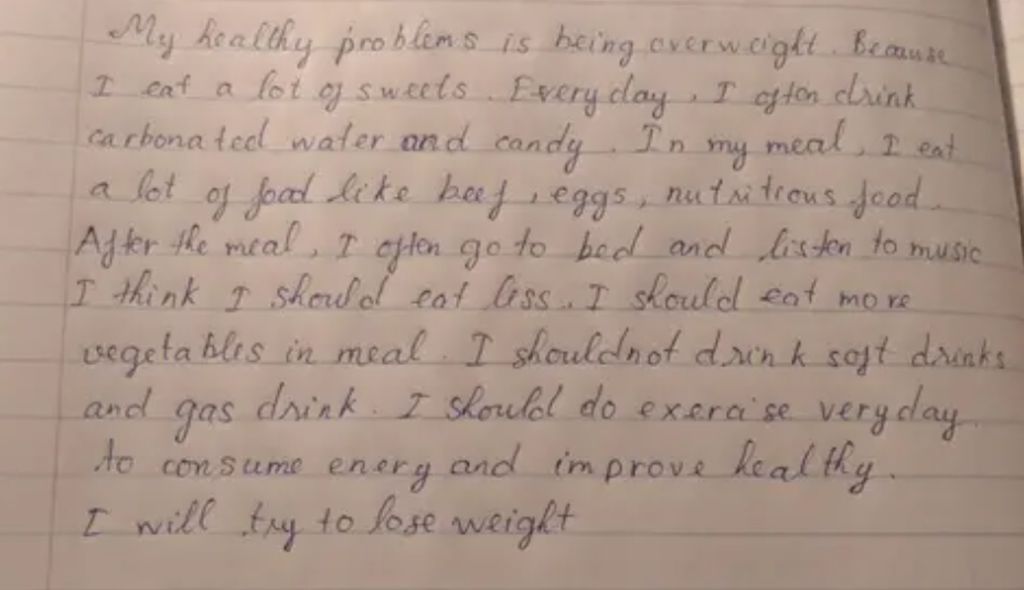 My healthy problems is being overweight. Because
I eat a lot of sweets. Every day, I often drink
carbonated water and candy. In my meal, I eat
a lot of food like beef, eggs, nutritious food.
After the meal, I often go to bed and listen to music
I think I should eat less. I should eat more
vegetables in meal. I shouldnot drink soft drinks
and gas drink. I should do exercise veryday.
to consume enery and improve healthy.
I will try to lose weight